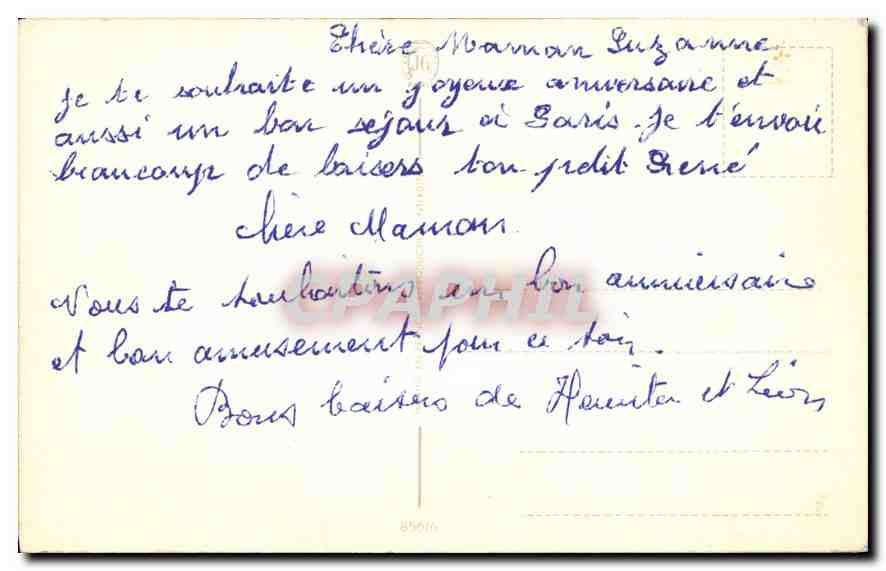 Chère Maman Suzanne
je te souhaite un joyeux aniversaire et
aussi un bon séjour à Paris. je t'envoie
beaucoup de baisers ton petit René
Chère Maman
Nous te souhaitons un bon anniversaire
et bon amusement pour ce soir.
Bons baisers de et Léon
CPAPHIL
856/6